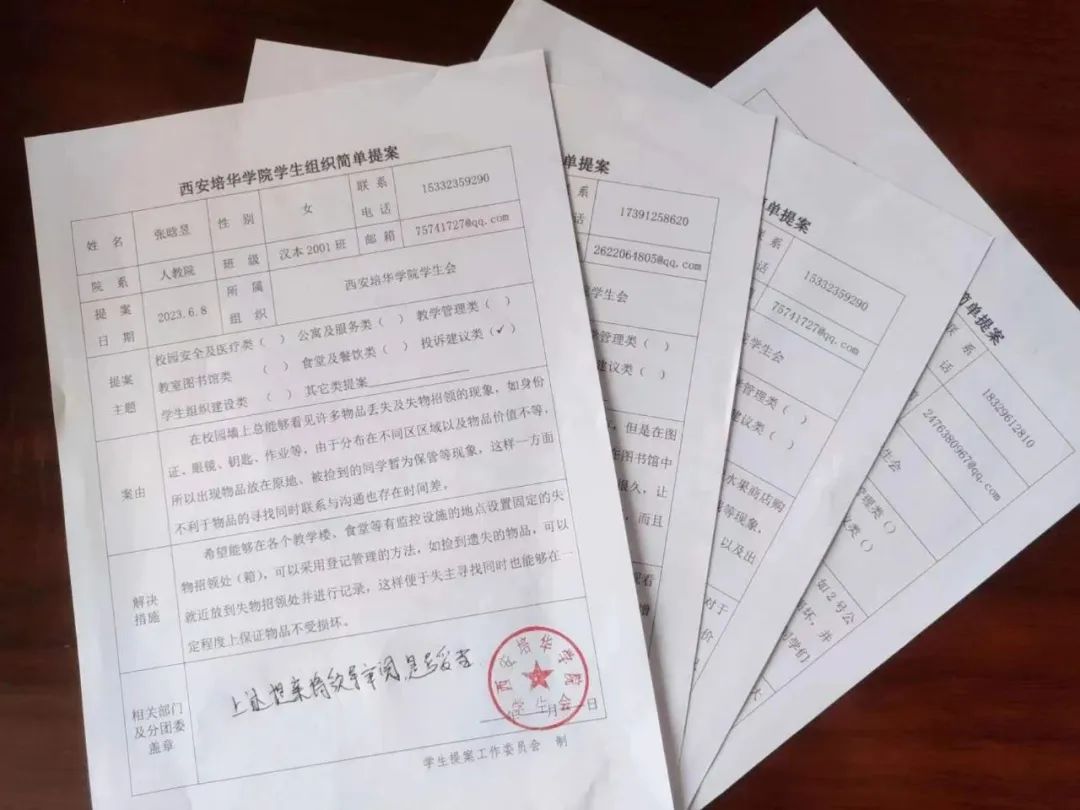 西安培华学院学生组织简单提案
姓 名 张晗昱 性 别 女 联 系 电 话 15332359290
院 系 人教院 班 级 汉本2001班 邮 箱 75741727@qq.com
提 案 日 期 2023.6.8 所 属 组 织 西安培华学院学生会
提案 主题
校园安全及医疗类（ ） 公寓及服务类（ ） 教学管理类（ ）
教室图书馆类 （ ） 食堂及餐饮类（ ） 投诉建议类（✓）
学生组织建设类 （ ） 其它类提案
案由
在校园墙上总能够看见许多物品丢失及失物招领的现象，如身份
证、眼镜、钥匙、作业等，由于分布在不同区区域以及物品价值不等，
所以出现物品放在原地、被捡到的同学暂为保管等现象，这样一方面
不利于物品的寻找同时联系与沟通也存在时间差。
解决 措施
希望能够在各个教学楼、食堂等有监控设施的地点设置固定的失
物招领处（箱），可以采用登记管理的方法，如捡到遗失的物品，可以
就近放到失物招领处并进行记录，这样便于失主寻找同时也能够在一
定程度上保证物品不受损坏。
相关部门
及分团委
盖章
上述提案
西安培华学院
学生会
月 日
学生提案工作委员会 制
单提案
系
话
17391258620
2622064805@qq.com
学生会
管理类（ ）
建议类（ ）
，但是在图
在图书馆中
很久，让
，而且
观看
增
简单提案
联 系
电 话
15332359290
75741727@qq.com
学生会
管理类（ ）
建议类（ ）
水果商店购
等现象，
以及出
对于
价
简单提案
联 系
话
18329612810
2476380967@qq.com
学生会
管理类（）
议类（）
如2号公
坏，并
同学们